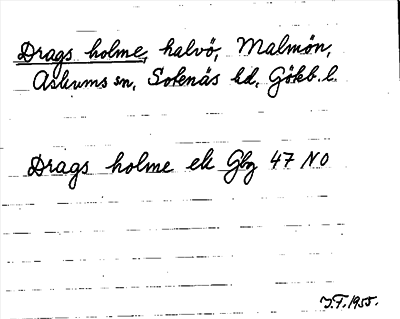 Drags holme, halvö, Malmön,
Askums sn, Sotenäs hd, Gökb. l.
Drags holme ek Gbg 47 NO
J.F. 1955.